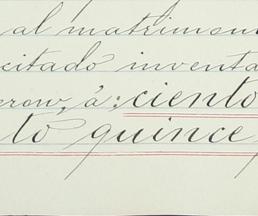 al matrimon
citado inventa
eron, á: ciento
to quince